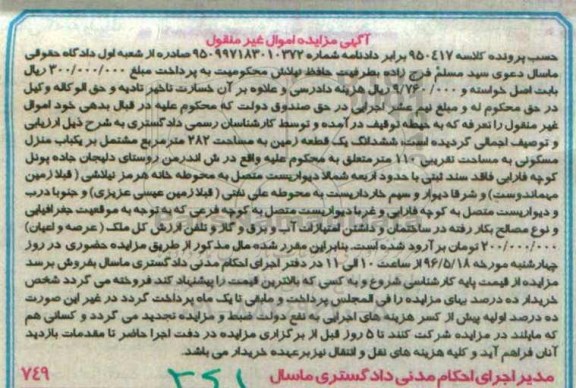 آگهی مزایده اموال غیر منقول
حسب پرونده کلاسه ۹۵۰۴۱۷ برابر دادنامه شماره ۹۵۰۹۹۷۱۸۳۰۱۰۳۷۲ صادره از شعبه اول دادگاه حقوقی
ماسال دعوی سید مسلم فرج زاده بطرفیت حافظ نیلاش محکومیت به پرداخت مبلغ ۳۰۰/۰۰۰/۰۰۰ ریال
بابت اصل خواسته و ۹/۷۶۰/۰۰۰ ریال هزینه دادرسی و علاوه بر آن خسارت تاخیر تادیه و حق الوکاله وکیل
در حق محکوم له و مبلغ نیم عشر اجرایی در حق صندوق دولت که محکوم علیه در قبال بدهی خود اموال
غیر منقول را تعرفه که به حیطه توقیف در آمده و توسط کارشناسان رسمی دادگستری به شرح ذیل ارزیابی
و توصیف اجمالی گردیده است، ششدانگ یک قطعه زمین به مساحت ۲۸۲ مترمربع مشتمل بر یکباب منزل
مسکونی به مساحت تقریبی ۱۱۰ مترمتعلق به محکوم علیه واقع در ش اندرمن روستای دلیجان جاده پونل
کوچه فارابی فاقد سند ثبتی با حدود اربعه شمالا دیواریست متصل به محوطه خانه هرمز نیلاشی ( قبلا زمین
میماندوست) و شرقا دیوار و سیم خارداریست به محوطه علی نقتی ( قبلا زمین عیسی عزیزی) و جنوبا درب
و دیواریست متصل به کوچه فارابی و غربا دیواریست متصل به کوچه فرعی که به توجه به موقعیت جغرافیایی
و نوع مصالح بکار رفته در ساختمان و داشتن امتیازات آب و برق و گاز و تلفن ارزش کل ملک ( عرصه و اعیان)
۲۰۰/۰۰۰/۰۰۰ تومان برآورد شده است. بنابراین مقرر شده مال مذکور از طریق مزایده حضوری در روز
چهارشنبه مورخه ۹۶/۵/۱۸ از ساعت ۱۰ الی ۱۱ در دفتر اجرای احکام مدنی دادگستری ماسال بفروش برسد
مزایده از قیمت پایه کارشناسی شروع و به کسی که بالاترین قیمت را پیشنهاد کند فروخته می گردد شخص
خریدار ده درصد بهای مزایده را فی المجلس پرداخت و مابقی تا یک ماه پرداخت گردد در غیر این صورت
ده درصد اولیه پس از کسر هزینه های اجرایی به نفع دولت ضبط و مزایده تجدید می گردد و کسانی هم
که مایلند در مزایده شرکت کنند تا ۵ روز قبل از برگزاری مزایده در دفت اجرا حاضر تا مقدمات بازدید
آنان فراهم آید و کلیه هزینه های نقل و انتقال نیز برعهده خریدار می باشد.
مدیر اجرای احکام مدنی دادگستری ماسال
۷۴۹